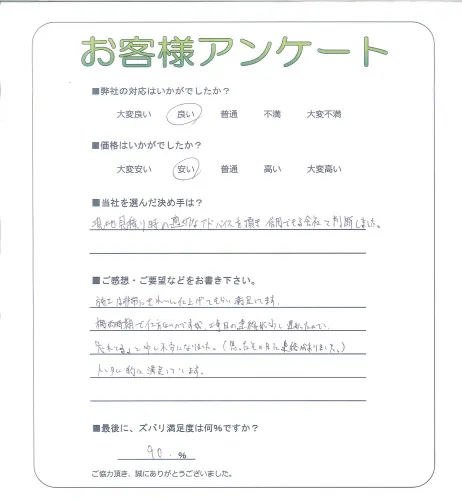 お客様アンケート
■弊社の対応はいかがでしたか？
大変良い 良い 普通 不満 大変不満
■価格はいかがでしたか？
大変安い 安い 普通 高い 大変高い
■当社を選んだ決め手は？
現地見積り時の適切なアドバイスを頂き 信用できる会社と判断しました。
■ご感想・ご要望などをお書き下さい。
施工は非常にきれいに仕上げてもらい満足してます。
梅雨時期で仕方ないのですが、工事日の連絡が少し遅れたので、
忘れてる？と少し不安になりました。（思った日に連絡がありました。）
トータル的に満足しています。
■最後に、ズバリ満足度は何％ですか？
90. %
ご協力頂き、誠にありがとうございました。